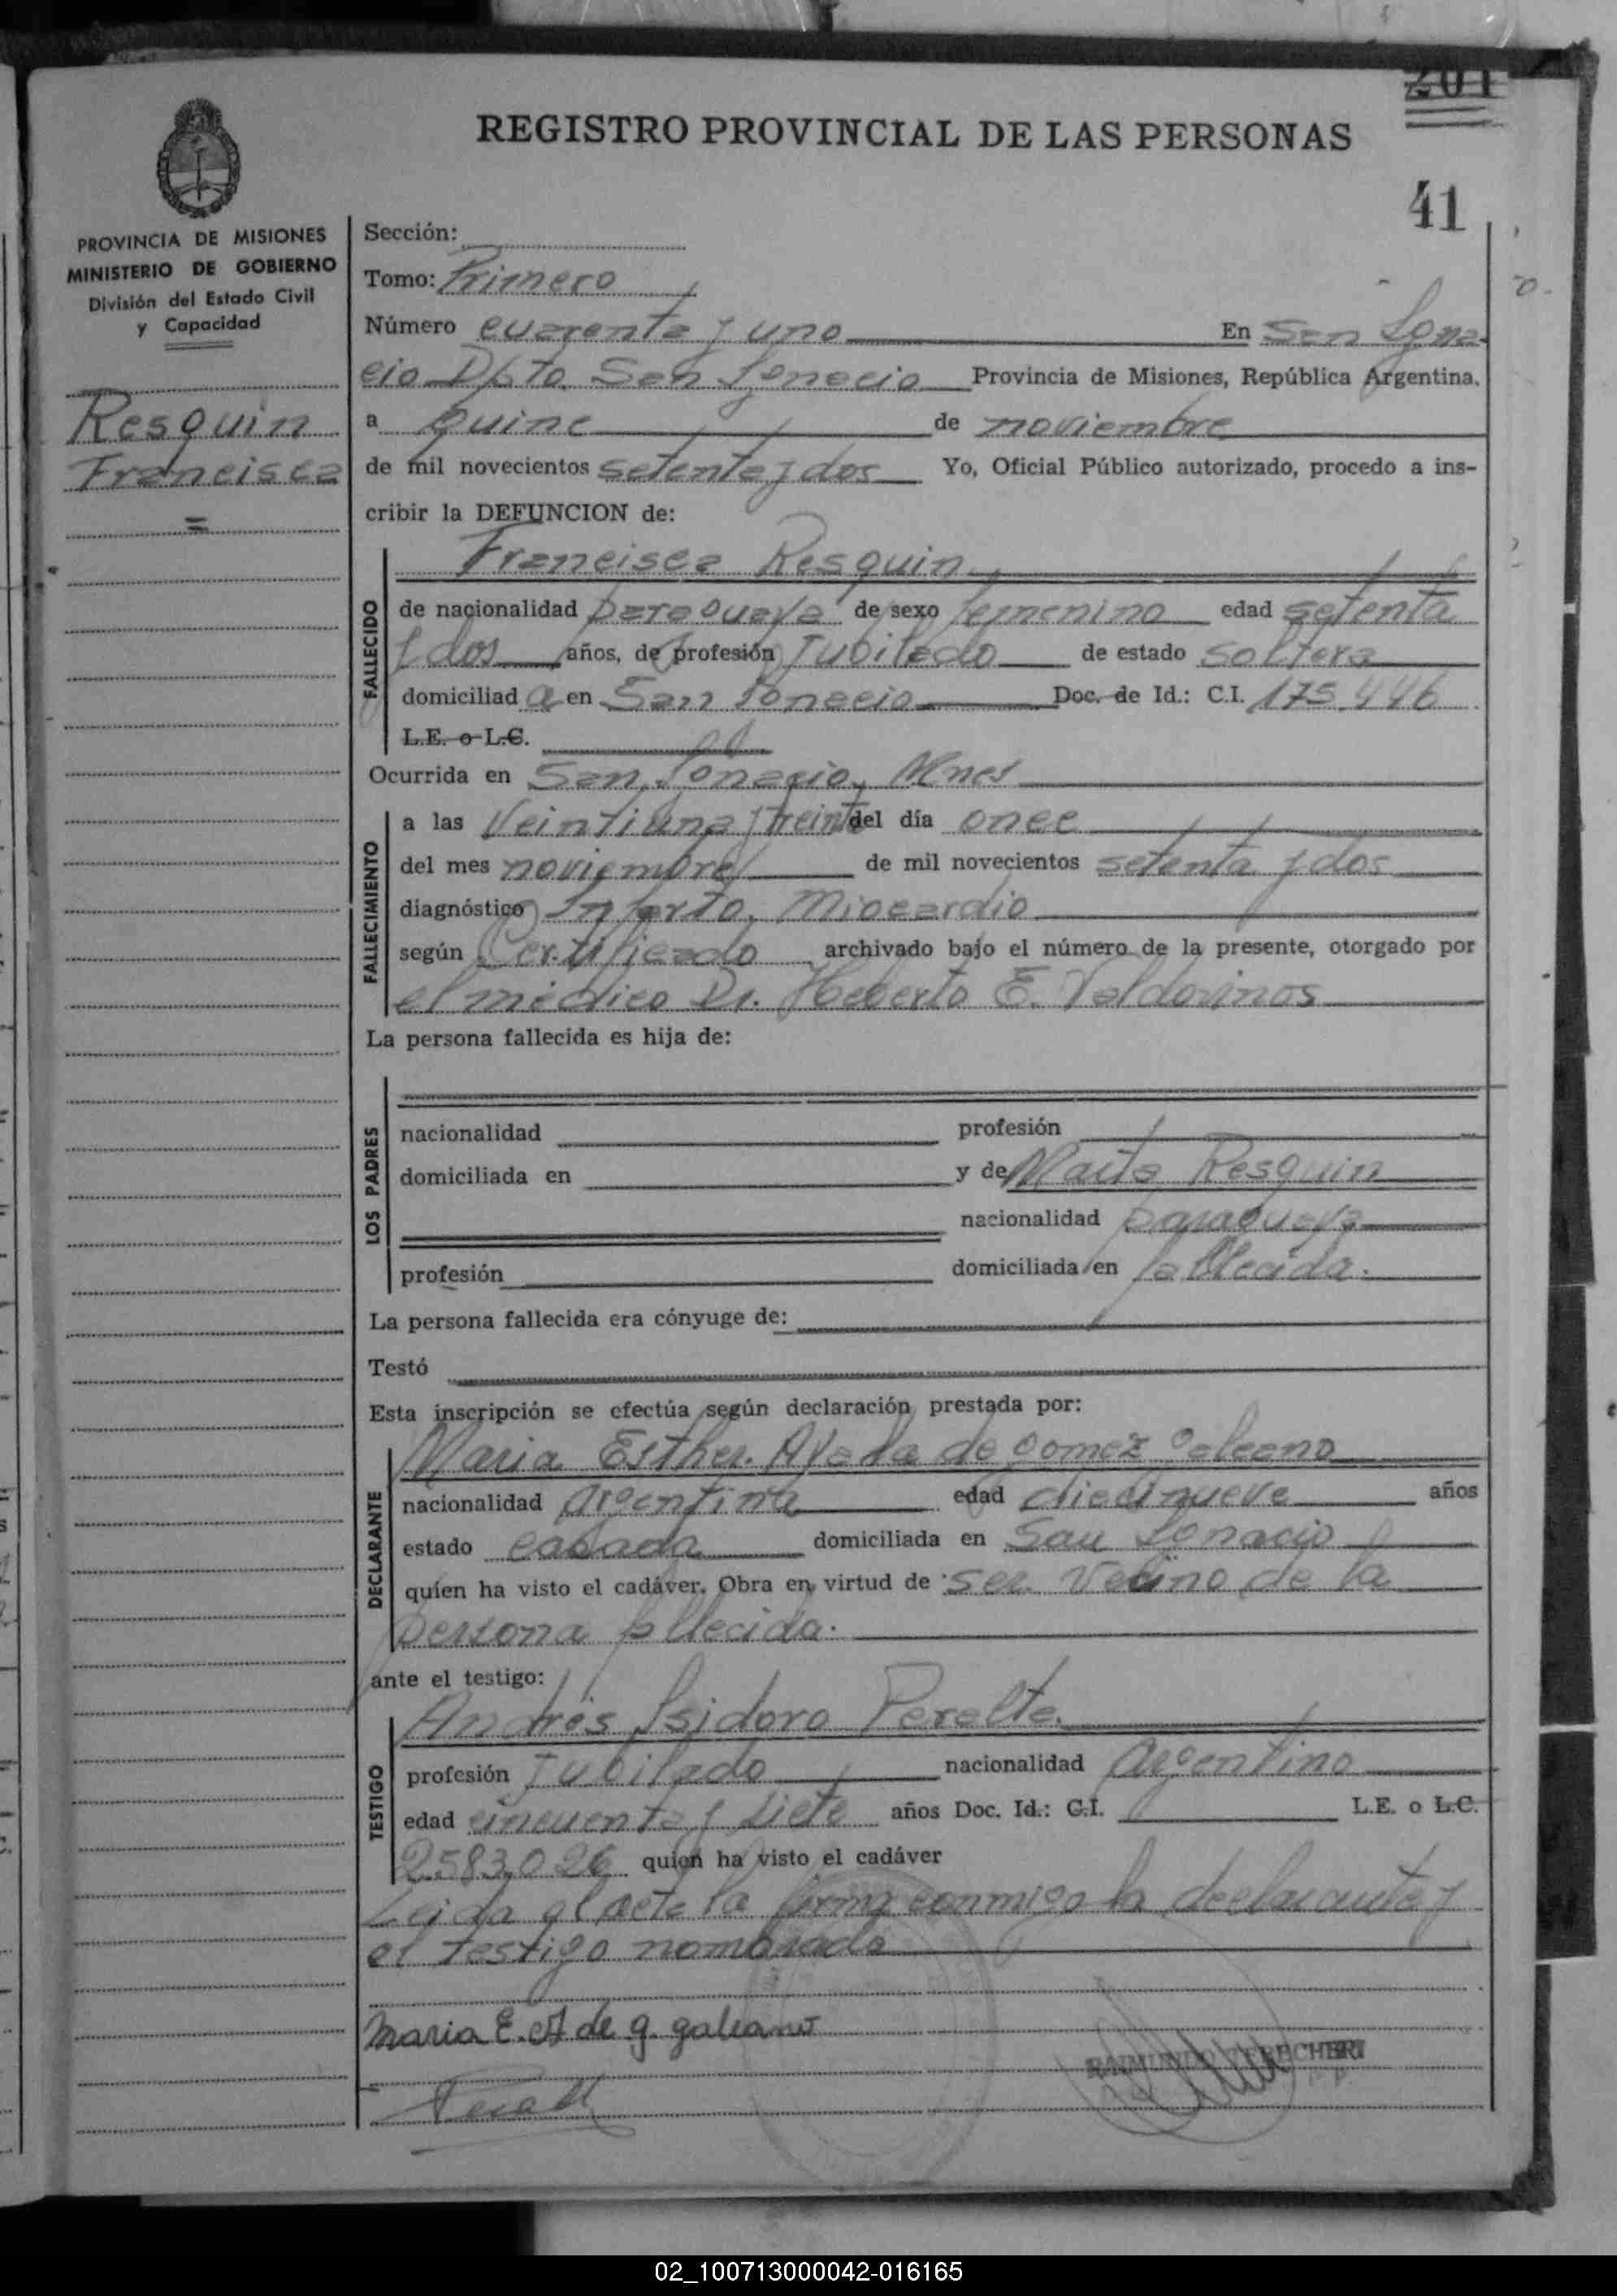 201
REGISTRO PROVINCIAL DE LAS PERSONAS
41
PROVINCIA DE MISIONES
MINISTERIO DE GOBIERNO
División del Estado Civil
y Capacidad
Resquin
Francisca
=
Sección:
Tomo: Primero
Número cuarenta y uno En San Igna
cio Dpto San Ignacio Provincia de Misiones, República Argentina.
a quince de noviembre
de mil novecientos setenta y dos Yo, Oficial Público autorizado, procedo a ins-
cribir la DEFUNCION de:
FALLECIDO
Francisca Resquin
de nacionalidad paraguaya de sexo femenino edad setenta
y dos años, de profesión Jubilado de estado soltera
domiciliad a en San Ignacio Doc. de Id.: C.I. 175.446
L.E. o L.C.
Ocurrida en San Ignacio, Mnes
FALLECIMIENTO
a las veintiuna y treinta del día once
del mes noviembre de mil novecientos setenta y dos
diagnóstico Infarto, Miocardio
según Certificado archivado bajo el número de la presente, otorgado por
el médico Dr. Heberto E. Valdovinos
La persona fallecida es hija de:
LOS PADRES
nacionalidad profesión
domiciliada en y de Maria Resquin
nacionalidad paraguaya
profesión domiciliada en fallecida.
La persona fallecida era cónyuge de:
Testó
Esta inscripción se efectúa según declaración prestada por:
DECLARANTE
Maria Esther Ayala de Gomez Galeano
nacionalidad argentina edad diecinueve años
estado casada domiciliada en San Ignacio
quien ha visto el cadáver. Obra en virtud de ser vecino de la
persona fallecida.
ante el testigo:
TESTIGO
Andrés Isidoro Peralta
profesión Jubilado nacionalidad argentino
edad cincuenta y siete años Doc. Id.: C.I. L.E. o L.C.
2583.026 quien ha visto el cadáver
Leida el acta la firma conmigo la declarante y
el testigo nombrado
Maria E. A de g. galeano
Peralt
RAIMUNDO
02_100713000042-016165